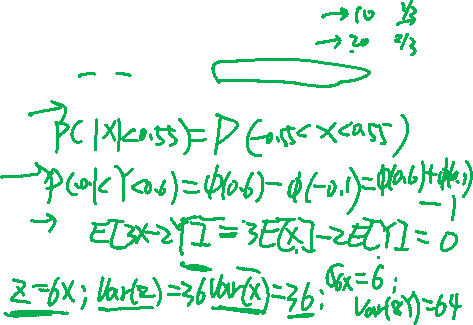 → 10 1/3
→ 20 2/3
→ P(|X|<0.55) = P(-0.55<X<0.55)
→ P(-0.1<Y<0.6) = Φ(0.6) - Φ(-0.1) = Φ(0.6) + Φ(0.1) - 1
→ E[3X-2Y] = 3E[X] - 2E[Y] = 0
Z=6X; Var(Z)=36Var(X)=36; σ6x=6; Var(8Y)=64